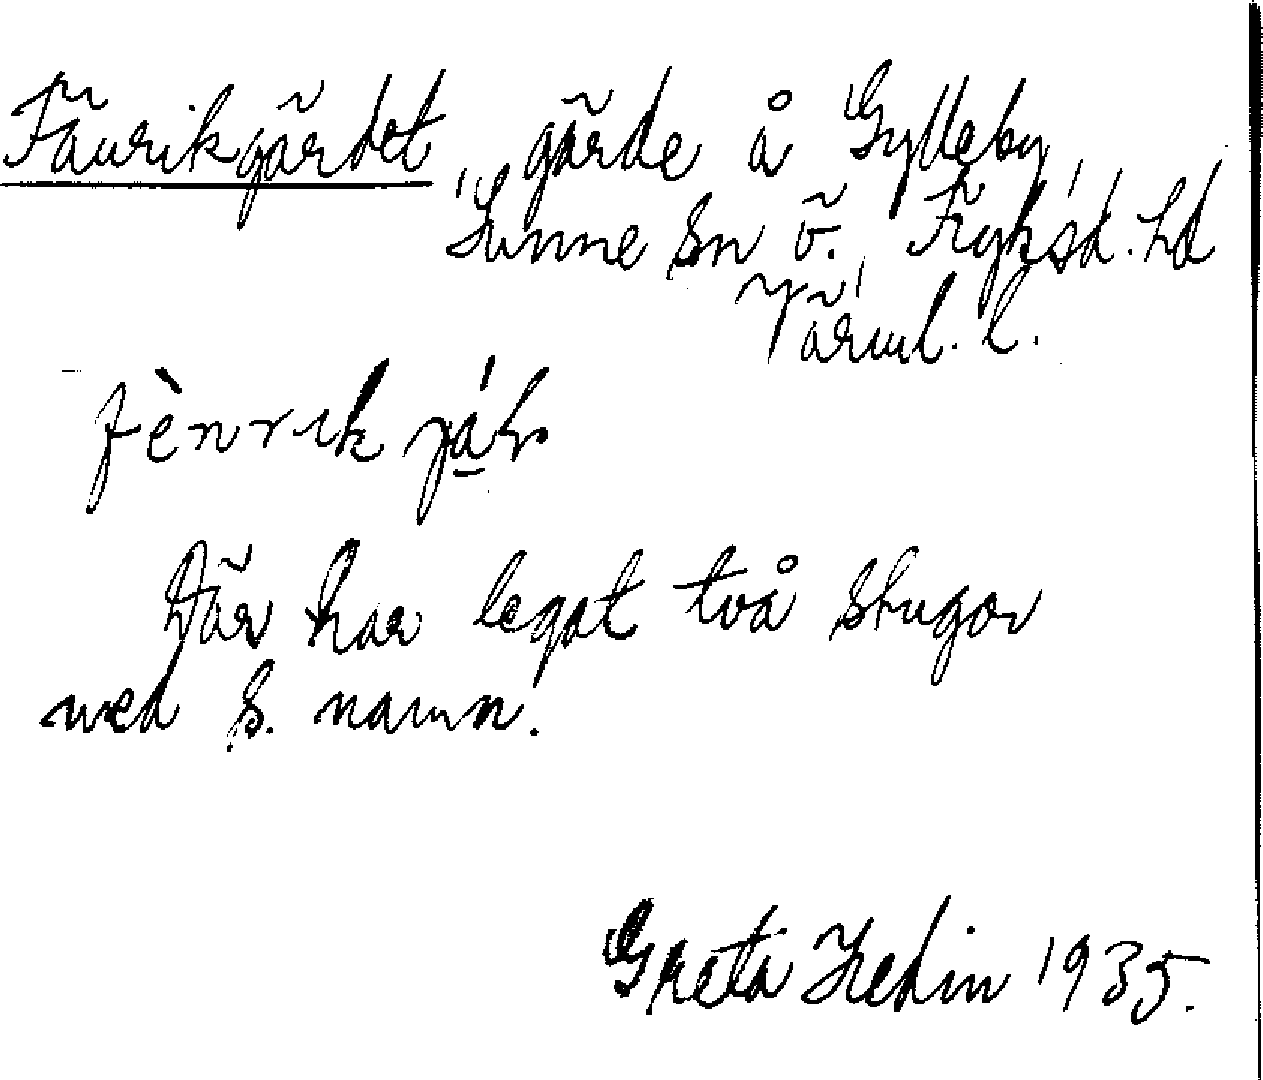 Fänrikgärdet, gärde å Gylleby,
Sunne sn Ö. Fryksd. hd
Värml. l.
fènrik
Där har legat två stugor
med s. namn.
Greta Hedin 1935.